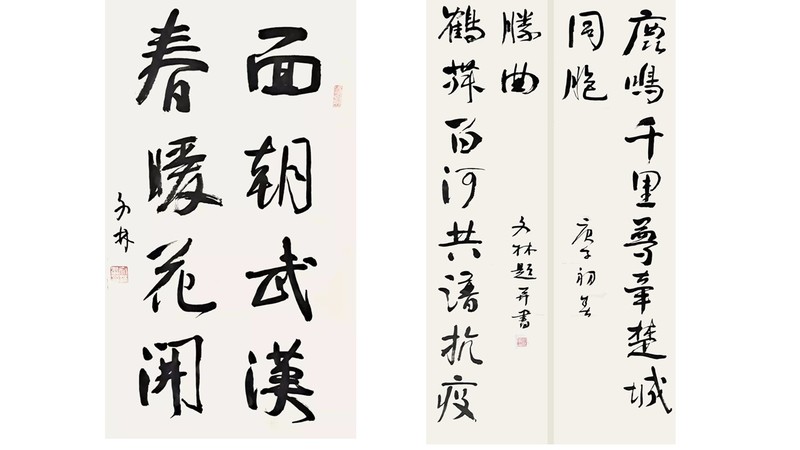 面朝武漢
春暖花開
文林
鹿鳴千里夢牽楚城
同胞
庚子初春
鶴舞百河共譜抗疫
勝曲
文林題并書